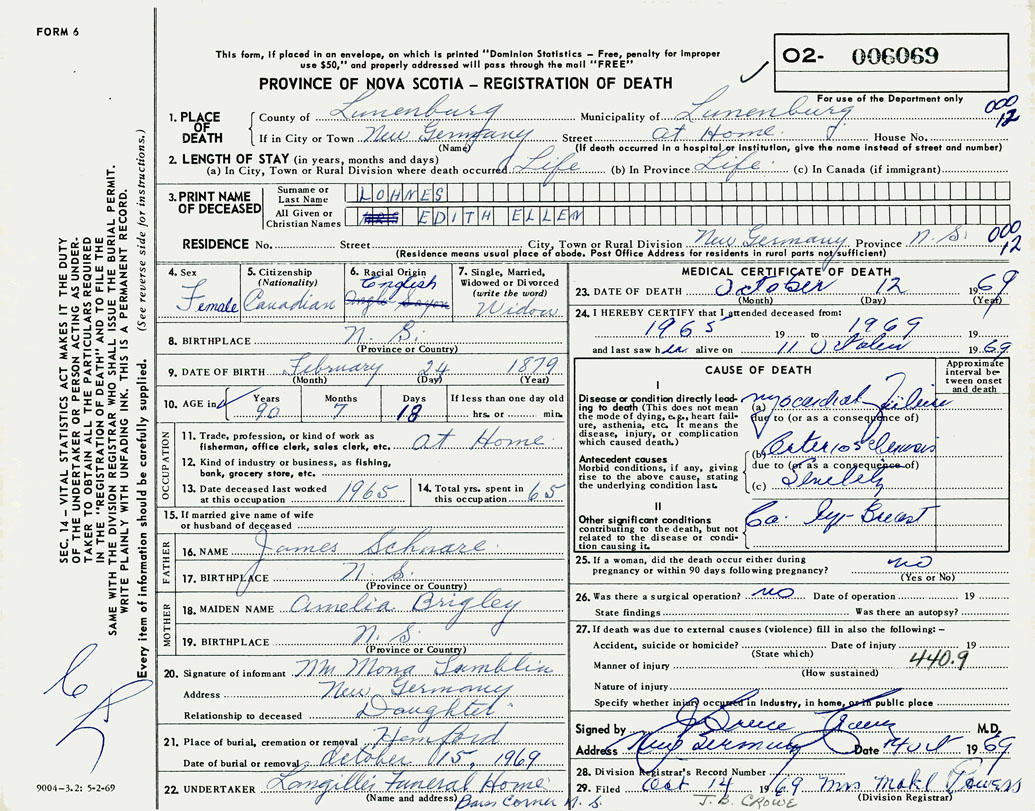 FORM 6
This form, if placed in an envelope, on which is printed "Dominion Statistics – Free, penalty for improper
use $50," and properly addressed will pass through the mail "FREE"
O2- 006069
For use of the Department only
PROVINCE OF NOVA SCOTIA – REGISTRATION OF DEATH
1. PLACE OF DEATH
County of Lunenburg Municipality of Lunenburg
000
12
If in City or Town New Germany Street at Home House No.
(Name) (If death occurred in a hospital or institution, give the name instead of street and number)
2. LENGTH OF STAY (in years, months and days)
(a) In City, Town or Rural Division where death occurred Life (b) In Province Life. (c) In Canada (if immigrant)
3. PRINT NAME OF DECEASED
Surname or Last Name LOHNES
All Given or Christian Names EDITH ELLEN
RESIDENCE No. Street City, Town or Rural Division New Germany Province N. S.
000
12
(Residence means usual place of abode. Post Office Address for residents in rural parts not sufficient)
4. Sex
Female
5. Citizenship
(Nationality)
Canadian
6. Racial Origin
English
Anglo Saxon
7. Single, Married,
Widowed or Divorced
(write the word)
Widow
8. BIRTHPLACE N. S.
(Province or Country)
9. DATE OF BIRTH February 24 1879
(Month) (Day) (Year)
10. AGE in
Years Months Days If less than one day old
90 7 18 hrs. or min.
OCCUPATION
11. Trade, profession, or kind of work as
fisherman, office clerk, sales clerk, etc. at Home
12. Kind of industry or business, as fishing,
bank, grocery store, etc.
13. Date deceased last worked
at this occupation 1965
14. Total yrs. spent in
this occupation 65
15. If married give name of wife
or husband of deceased
FATHER
16. NAME James Schnare.
17. BIRTHPLACE N. S.
(Province or Country)
MOTHER
18. MAIDEN NAME Amelia Brigley
19. BIRTHPLACE N. S.
(Province or Country)
20. Signature of informant Mrs Mona
Address New Germany
Relationship to deceased Daughter
21. Place of burial, cremation or removal Hemford
Date of burial or removal October 15, 1969
22. UNDERTAKER Langilles Funeral Home
(Name and address) Barss Corner N. S.
MEDICAL CERTIFICATE OF DEATH
23. DATE OF DEATH October 12 1969
(Month) (Day) (Year)
24. I HEREBY CERTIFY that I attended deceased from:
1965 19 to 1969 19
and last saw her alive on 11 October 1969
CAUSE OF DEATH
Approximate
interval between
onset
and death
I
Disease or condition directly leading
to death (This does not
mean the mode of dying, e.g., heart failure,
asthenia, etc. It means the
disease, injury, or complication
which caused death.)
(a) Myocardial Failure
due to (or as a consequence of)
Antecedent causes
Morbid conditions, if any, giving
rise to the above cause, stating
the underlying condition last.
(b) Arteriosclerosis
due to (or as a consequence of)
(c) Senility
II
Other significant conditions
contributing to the death, but not
related to the disease or condition
causing it.
Ca. Breast
25. If a woman, did the death occur either during
pregnancy or within 90 days following pregnancy? no
(Yes or No)
26. Was there a surgical operation? no Date of operation 19
State findings Was there an autopsy?
27. If death was due to external causes (violence) fill in also the following: –
Accident, suicide or homicide? Date of injury 19
(State which)
440.9
Manner of injury
(How sustained)
Nature of injury
Specify whether injury occurred in industry, in home, or in public place
Signed by J Bruce M.D.
Address New Germany Date 14 Oct 1969
28. Division Registrar's Record Number
29. Filed Oct 14 1969 Mrs
(Division Registrar)
J. B. CROWE
9004-3.2: 5-2-69
SEC. 14 – VITAL STATISTICS ACT MAKES IT THE DUTY
OF THE UNDERTAKER OR PERSON ACTING AS UNDERTAKER
TO OBTAIN ALL THE PARTICULARS REQUIRED
IN THE "REGISTRATION OF DEATH" AND TO FILE THE
SAME WITH THE DIVISION REGISTRAR WHO SHALL ISSUE THE BURIAL PERMIT.
WRITE PLAINLY WITH UNFADING INK. THIS IS A PERMANENT RECORD.
Every item of information should be carefully supplied. (See reverse side for instructions.)